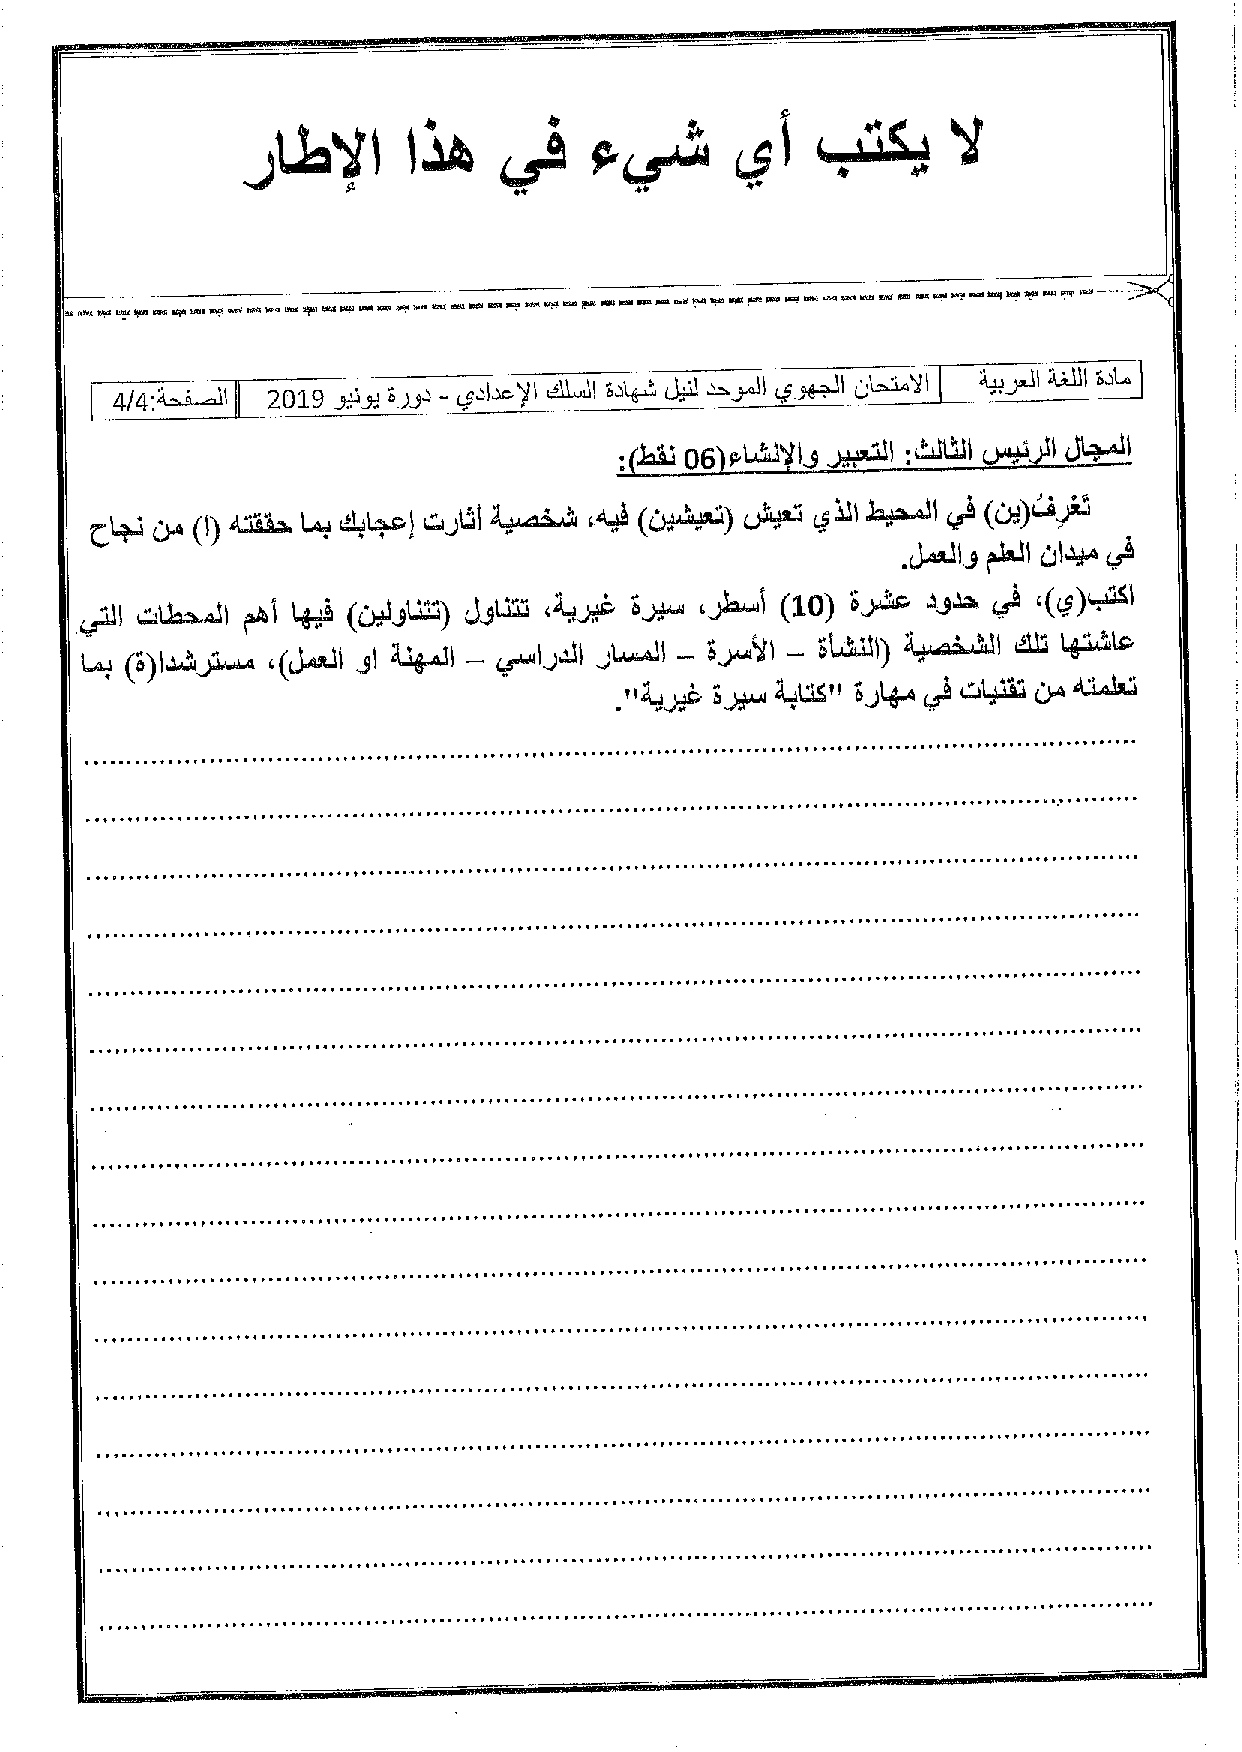 لا يكتب أي شيء في هذا الإطار
مادة اللغة العربية الامتحان الجهوي الموحد لنيل شهادة السلك الإعدادي - دورة يونيو 2019 الصفحة:4/4
المجال الرئيس الثالث: التعبير والإنشاء(06 نقط):
تَعْرِفُ(ين) في المحيط الذي تعيش (تعيشين) فيه، شخصية أثارت إعجابك بما حققته (ا) من نجاح
في ميدان العلم والعمل.
اكتب(ي)، في حدود عشرة (10) أسطر، سيرة غيرية، تتناول (تتناولين) فيها أهم المحطات التي
عاشتها تلك الشخصية (النشأة – الأسرة – المسار الدراسي – المهنة او العمل)، مسترشدا(ة) بما
تعلمته من تقنيات في مهارة "كتابة سيرة غيرية".